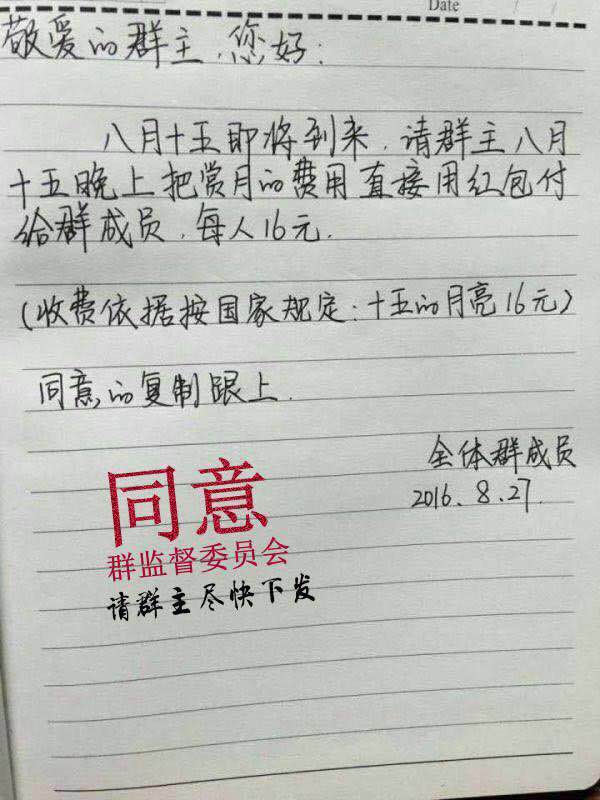 Date
敬爱的群主,您好:
八月十五即将到来,请群主八月
十五晚上把赏月的费用直接用红包付
给群成员,每人16元.
(收费依据按国家规定:十五的月亮16元)
同意的复制跟上.
全体群成员
2016.8.27.
同意
群监督委员会
请群主尽快下发